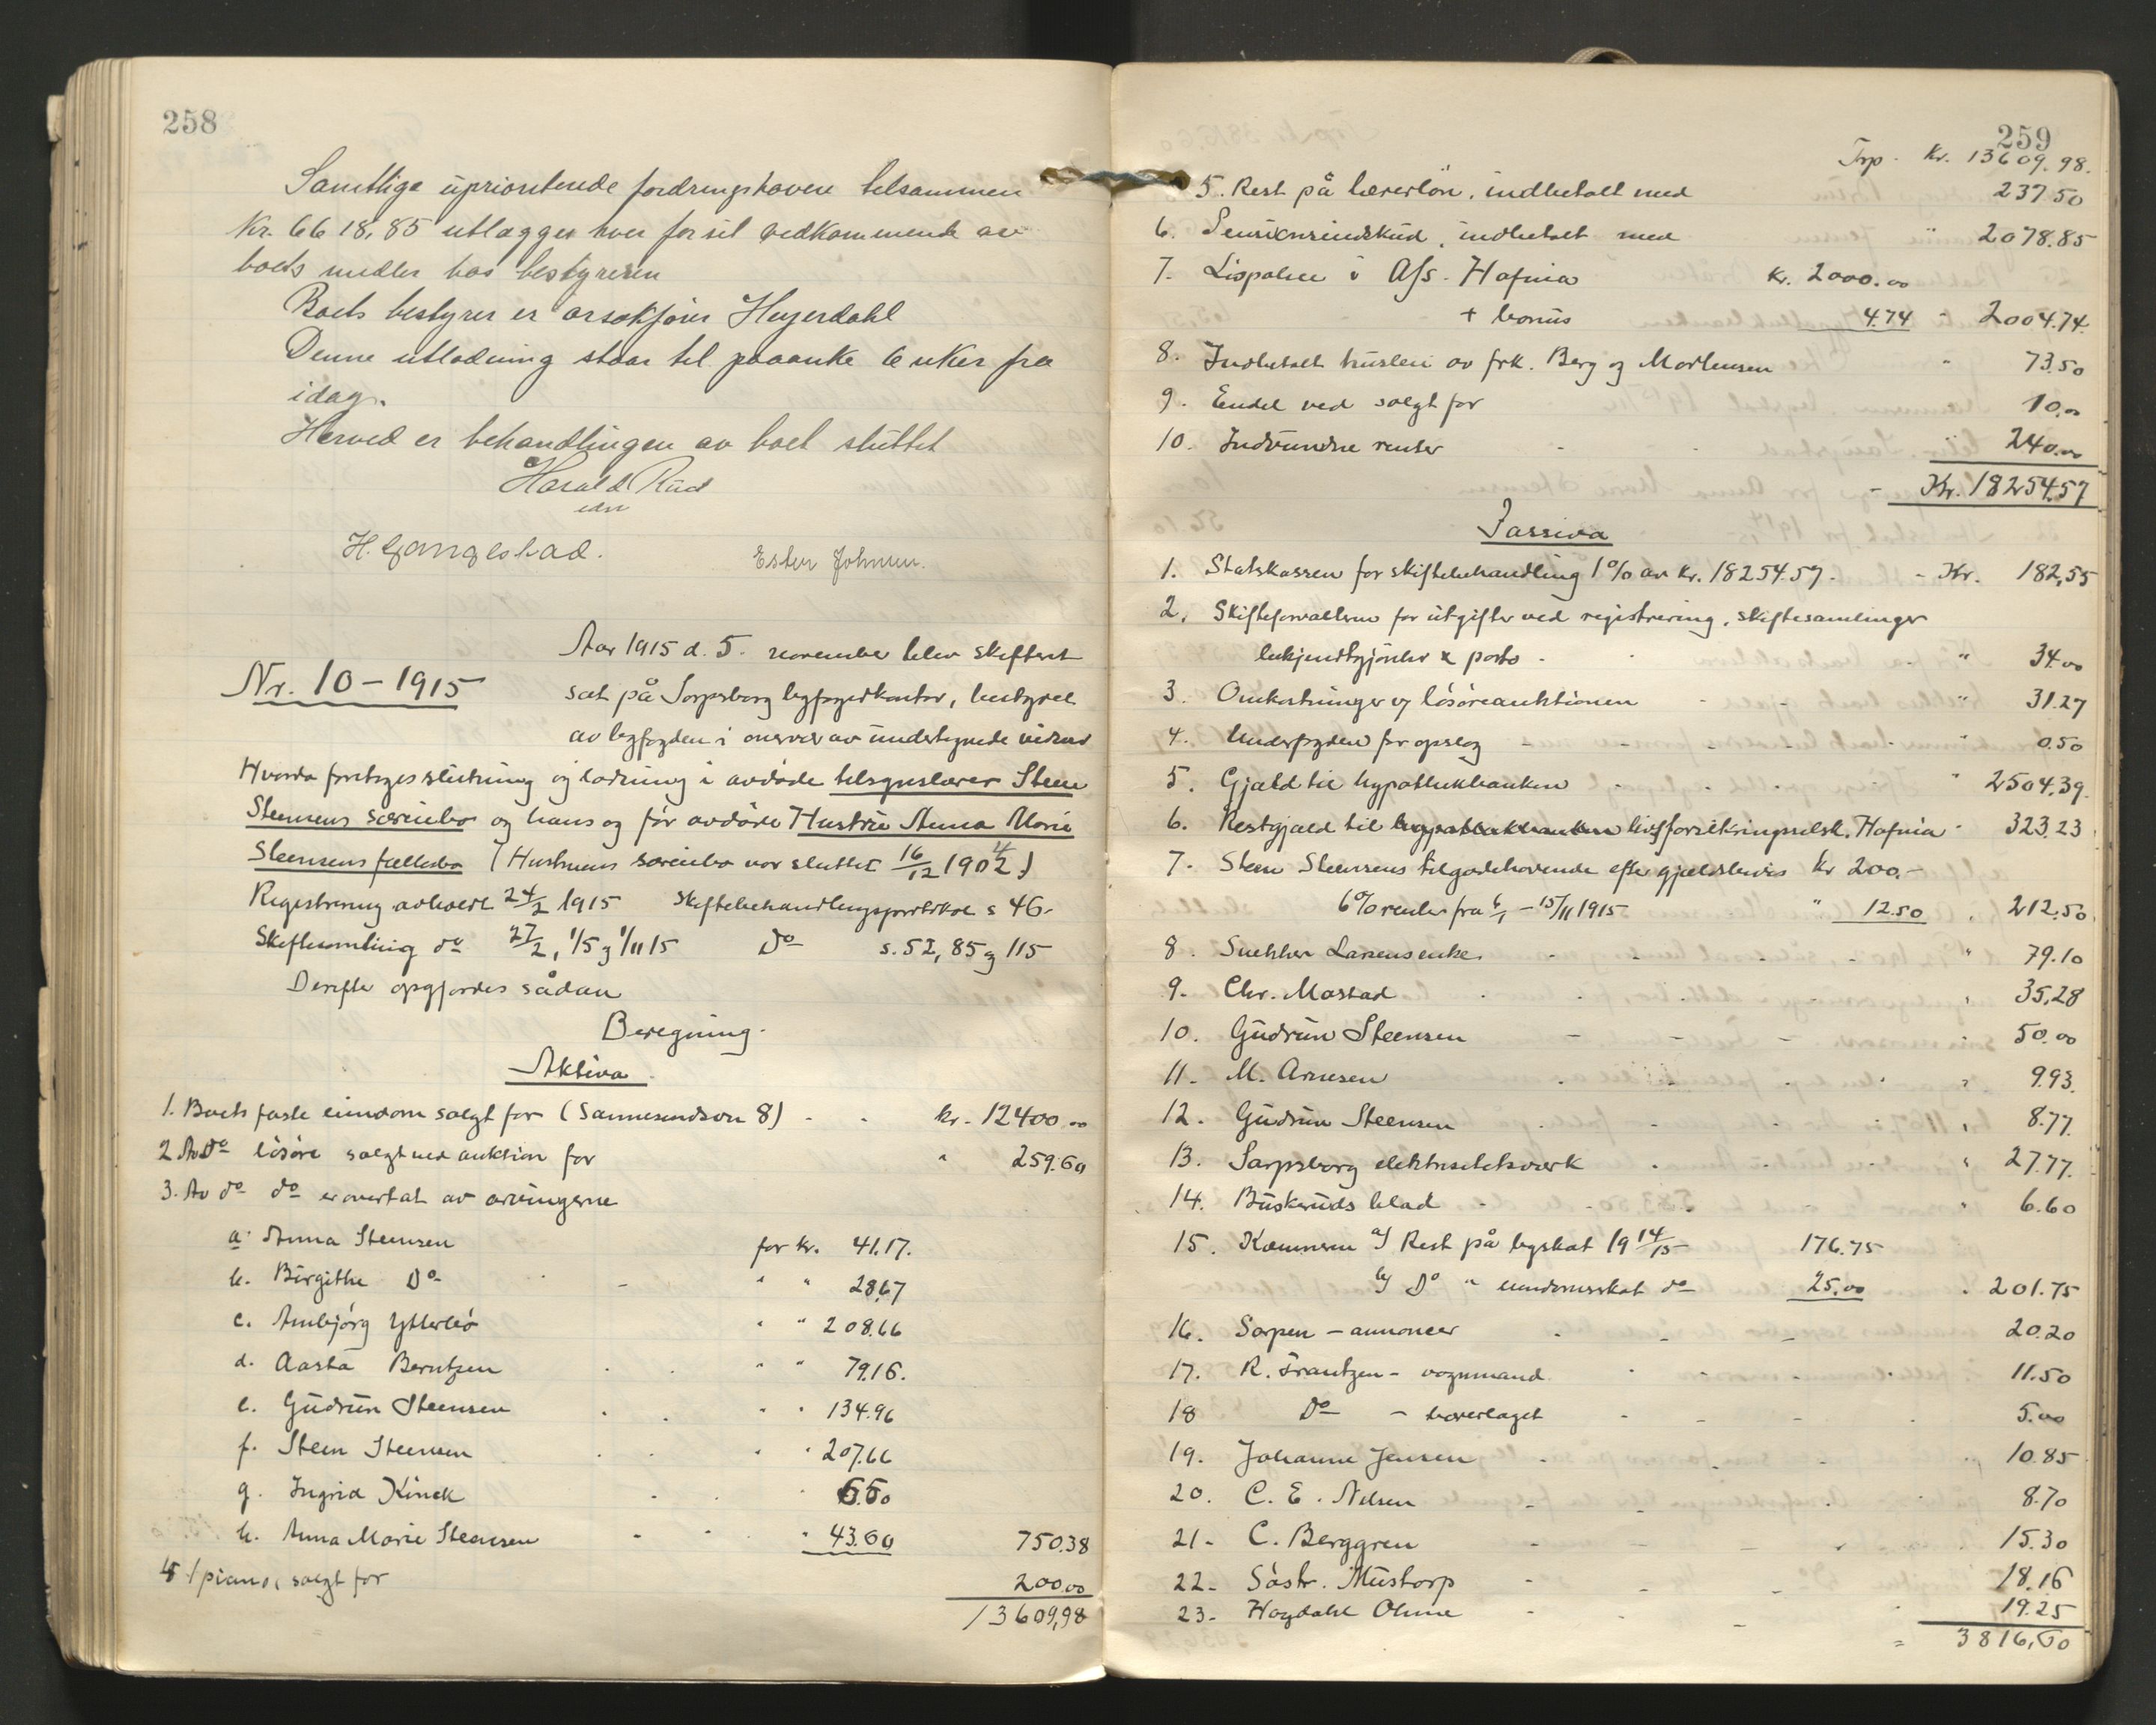 258
Samtlige uprioriterede fordringshavere tilsammen
Kr. 6618,85 utlægges hver for sit vedkommende av
boets midler hos bestyreren
Boets bestyrer er orsakfører Heyerdahl
Denne utlodning staar til paaanke 6 uker fra
idag.
Herved er behandlingen av boet sluttet
Harald Rud
edsv
H. Gangestad.
Ester Johnsen.
Nr. 10 – 1915
Aar 1915 d. 5. november blev skifteret
sat på Sarpsborg byfogedkontor, bestyret
av byfogden i overvær av undertegnede vidner
Hvorda foretoges slutning og lodning i avdøde telegnslærer Steen
Steensens særeiebo og hans og før avdøde Hustru Anna Marie
Steensens fællesbo (Hustruens særeiebo var sluttet 16/12 1902)
Registrering avholdt 24/2 1915 Skiftebehandlingsprotokol s 46.
Skiftesamling do 27/2, 1/5 og 1/11 15 Do s. 52, 85 og 115
Derefter opgjordes sådan
Beregning.
Aktiva
1. Boets faste eiendom solgt for (Sannesundsvn 8) - - kr. 12400.00
2 Av do løsøre solgt ved auktion for " 259.60
3. Av do do er overtat av arvingerne
a. Anna Steensen for kr. 41.17.
b. Birgithe Do - " " 28.67
c. Ambjørg Ytterbø " " 208.66
d. Aasta Berntzen . . " " 79.16.
e. Gudrun Steensen . . " " 134.96
f. Steen Steensen . . " " 207.66
g. Ingrid Kinck . . " 6.50
h. Anna Marie Steensen - - " 43.60 750.38
4 1 piano, solgt for 200.00
13609,98
259
Trp. Kr. 13609.98.
5. Rest på lærerløn, indbetalt med 237.50
6. Pensionsindskud, indbetalt med " 2078.85
7. Livpolice i A/s. Hafnia Kr. 2000.00
+ bonus 4.74 " 2004.74.
8. Indbetalt husleie av frk. Berg og Mortensen " 73.50
9. Endel ved solgt for 10.00
10. Indvundne renter - . " 240.00
- Kr. 18254.57
Passiva
1. Statskassen for skiftebehandling 1% av Kr. 18254.57. - Kr. 182,55
2. Skifteforvalteren for utgifter ved registrering, skiftesamlinger
bekjendtgjörelser & porto - . - " 34.00
3. Omkostninger v/ løsøreauktionen - - " 31.27
4. Underfogden for opslag - - - - - " 0.50
5. Gjæld til hypothekbanken - - - " 2504.39.
6. Restgjæld til hypothekbanken livsforsikringsselsk. Hafnia " 323.23
7. Steen Steensens tilgodehavende efter gjældsbevis Kr 200.-
6% renter fra 6/1 – 15/11 1915 " 12.50 " 212.50
8. Snekker Larsens enke. - - - - " 79.10
9. Chr. Mostad . . - . " 35,28
10. Gudrun Steensen - - - . 50.00
11. M. Arnesen . . . " 9.93.
12. Gudrun Steensen . - . " 8.77.
13. Sarpsborg elektricitetsverk . - . " 27.77.
14. Buskeruds blad - - . " 6.60
15. Kæmneren a/ Rest på byskat 19 14/15 176.75
b/ Do " eiendomsskat do 25.00 " 201.75
16. Sarpen – annoncer . - - 20.20
17. R. Frantzen – vognmand . - - . 11.50
18 Do – baverlaget - - - . 5.00
19. Johanne Jensen - - - " 10.85
20. C. E. Nilsen - - . . 8.70
21. C. Berggren - - - - " 15.30
22. Søstr. Mustorp - - - 18.16
23. Hoydahl Ohme - . - . 19.25
= 3816,60